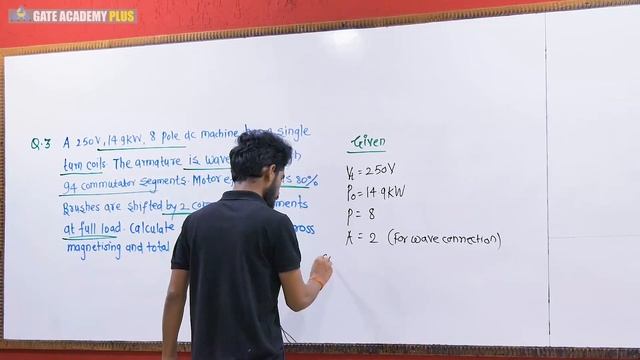 GATE ACADEMY PLUS
Q.3 A 250V, 14.9KW, 8 pole dc machine single
turn coils. The armature is wave
94 commutator segments. Motor 80%
Brushes are shifted by 2
at full load. Calculate
magnetising and total
Given
Vt = 250V
Po = 14.9KW
P = 8
A = 2 (for wave connection)